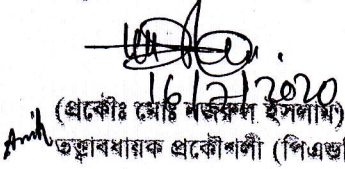 16/7/2020
(প্রকৌঃ মোঃ নজরুল ইসলাম)
তত্ত্বাবধায়ক প্রকৌশলী (পিএন্ড